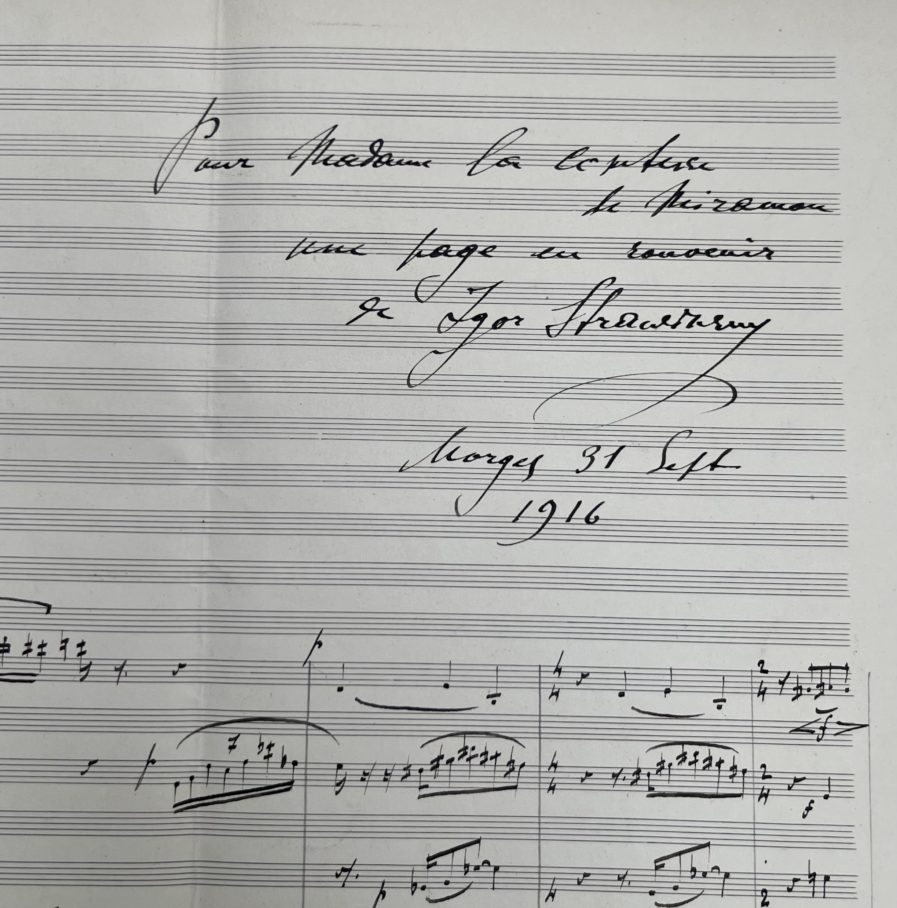 Pour Madame la comtesse
de Miramon
une page en souvenir
de Igor Strawinsky
Morges 31 Sept
1916
p
4
4
2
4
f
p
4
4
2
4
f
p
4
2